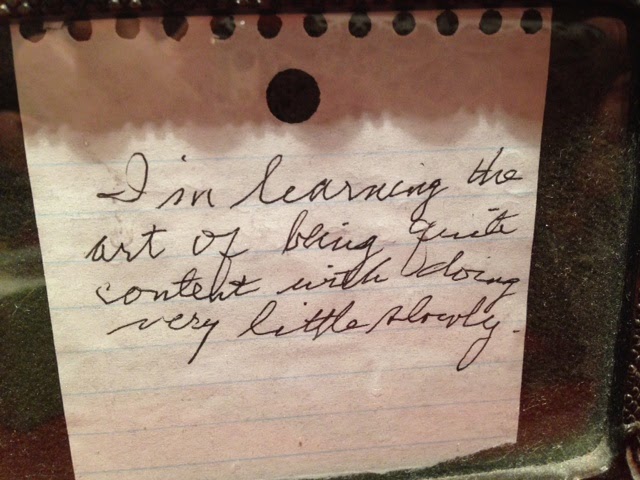 I'm learning the
art of being quite
content with doing
very little slowly.